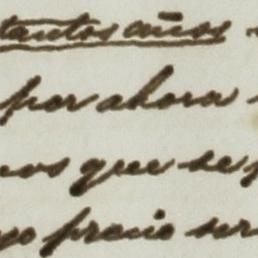 tantos años
por ahora
que se
precio